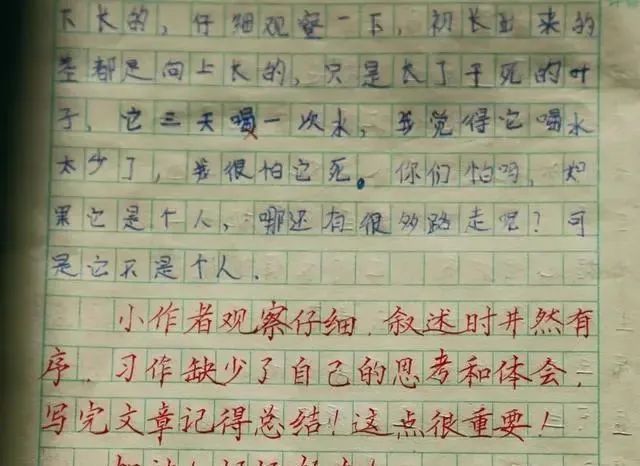 下长的，仔细观察一下，初长出来的
茎都是向上长的，只是长了干死的叶
子，它三天喝一次水，我觉得它喝水
太少了，我很怕它死。你们怕吗，如
果它是个人，哪还有很多路走呢？可
是它不是个人．
小作者观察仔细，叙述时井然有
序．习作缺少了自己的思考和体会，
写完文章记得总结！这点很重要！